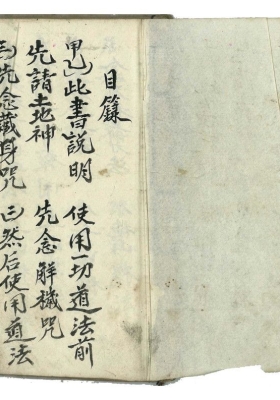 目籙
甲乙此書說明 使用一切道法前
先請土地神 先念解穢咒
先念藏身咒 然后使用道法